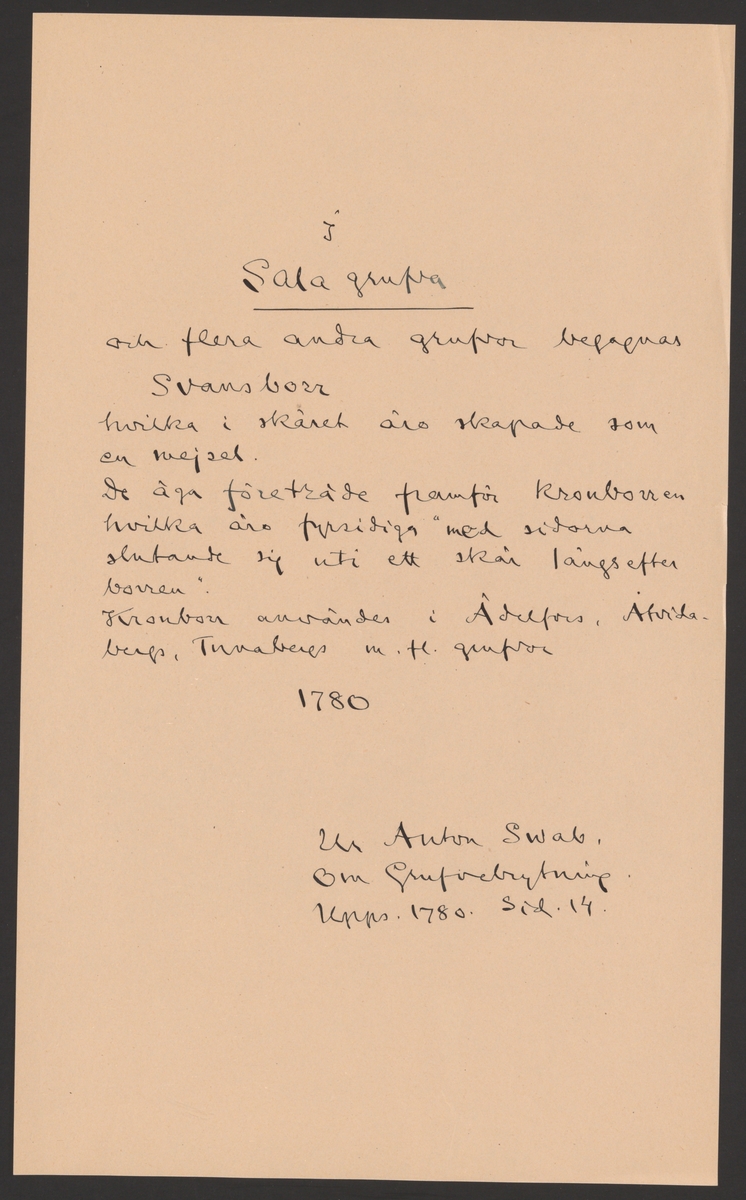 I
Sala grufva
och flera andra grufvor begagnas
Svansborr
hvilka i skäret äro skapade som
en mejsel.
De äga företräde framför Kronborren
hvilka äro fyrsidiga "med sidorna
slutande sig uti ett skär längsefter
borren".
Kronborr användes i Ädelfors, Åtvida-
bergs, Tunabergs m. fl. grufvor
1780
Ur Anton Swab.
Om Grufvebrytning.
Upps. 1780. Sid. 14.